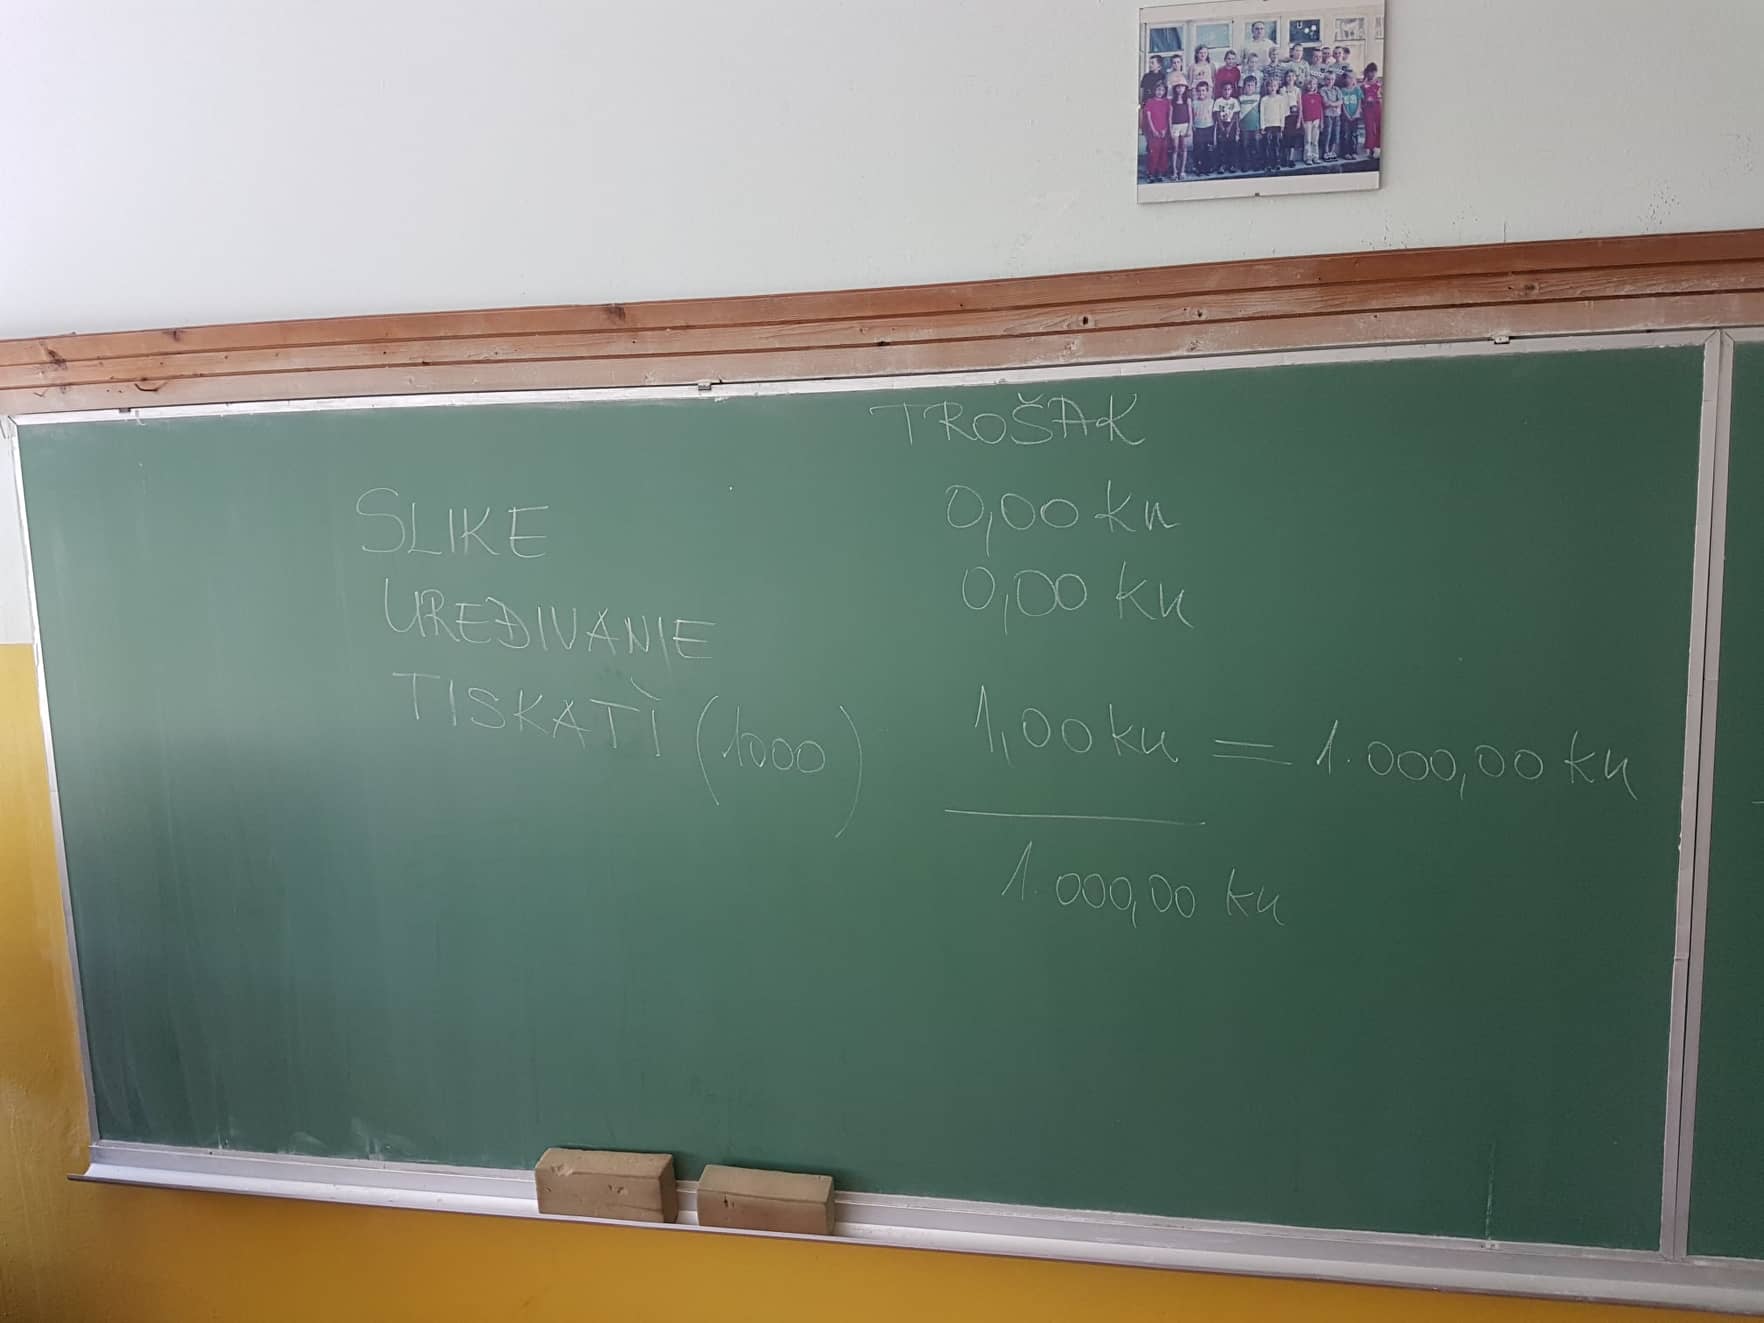 TROŠAK
SLIKE 0,00 kn
UREĐIVANJE 0,00 kn
TISKATI (1000) 1,00 kn = 1.000,00 kn
1.000,00 kn